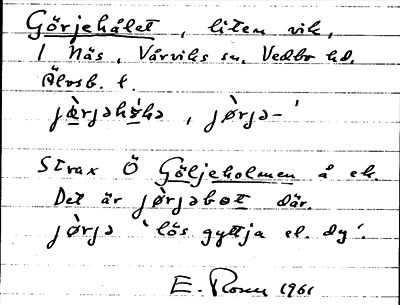 Görjehålet, liten vik,
1 Näs, Vårviks sn, Vedbo hd.
Älvsb. l.
jø̀rjə-'
Strax Ö Göljeholmen å ek.
Det är jø̀rjəbøtt där.
jø̀rjə 'lös gyttja el. dy'.
E. Rosen 1961